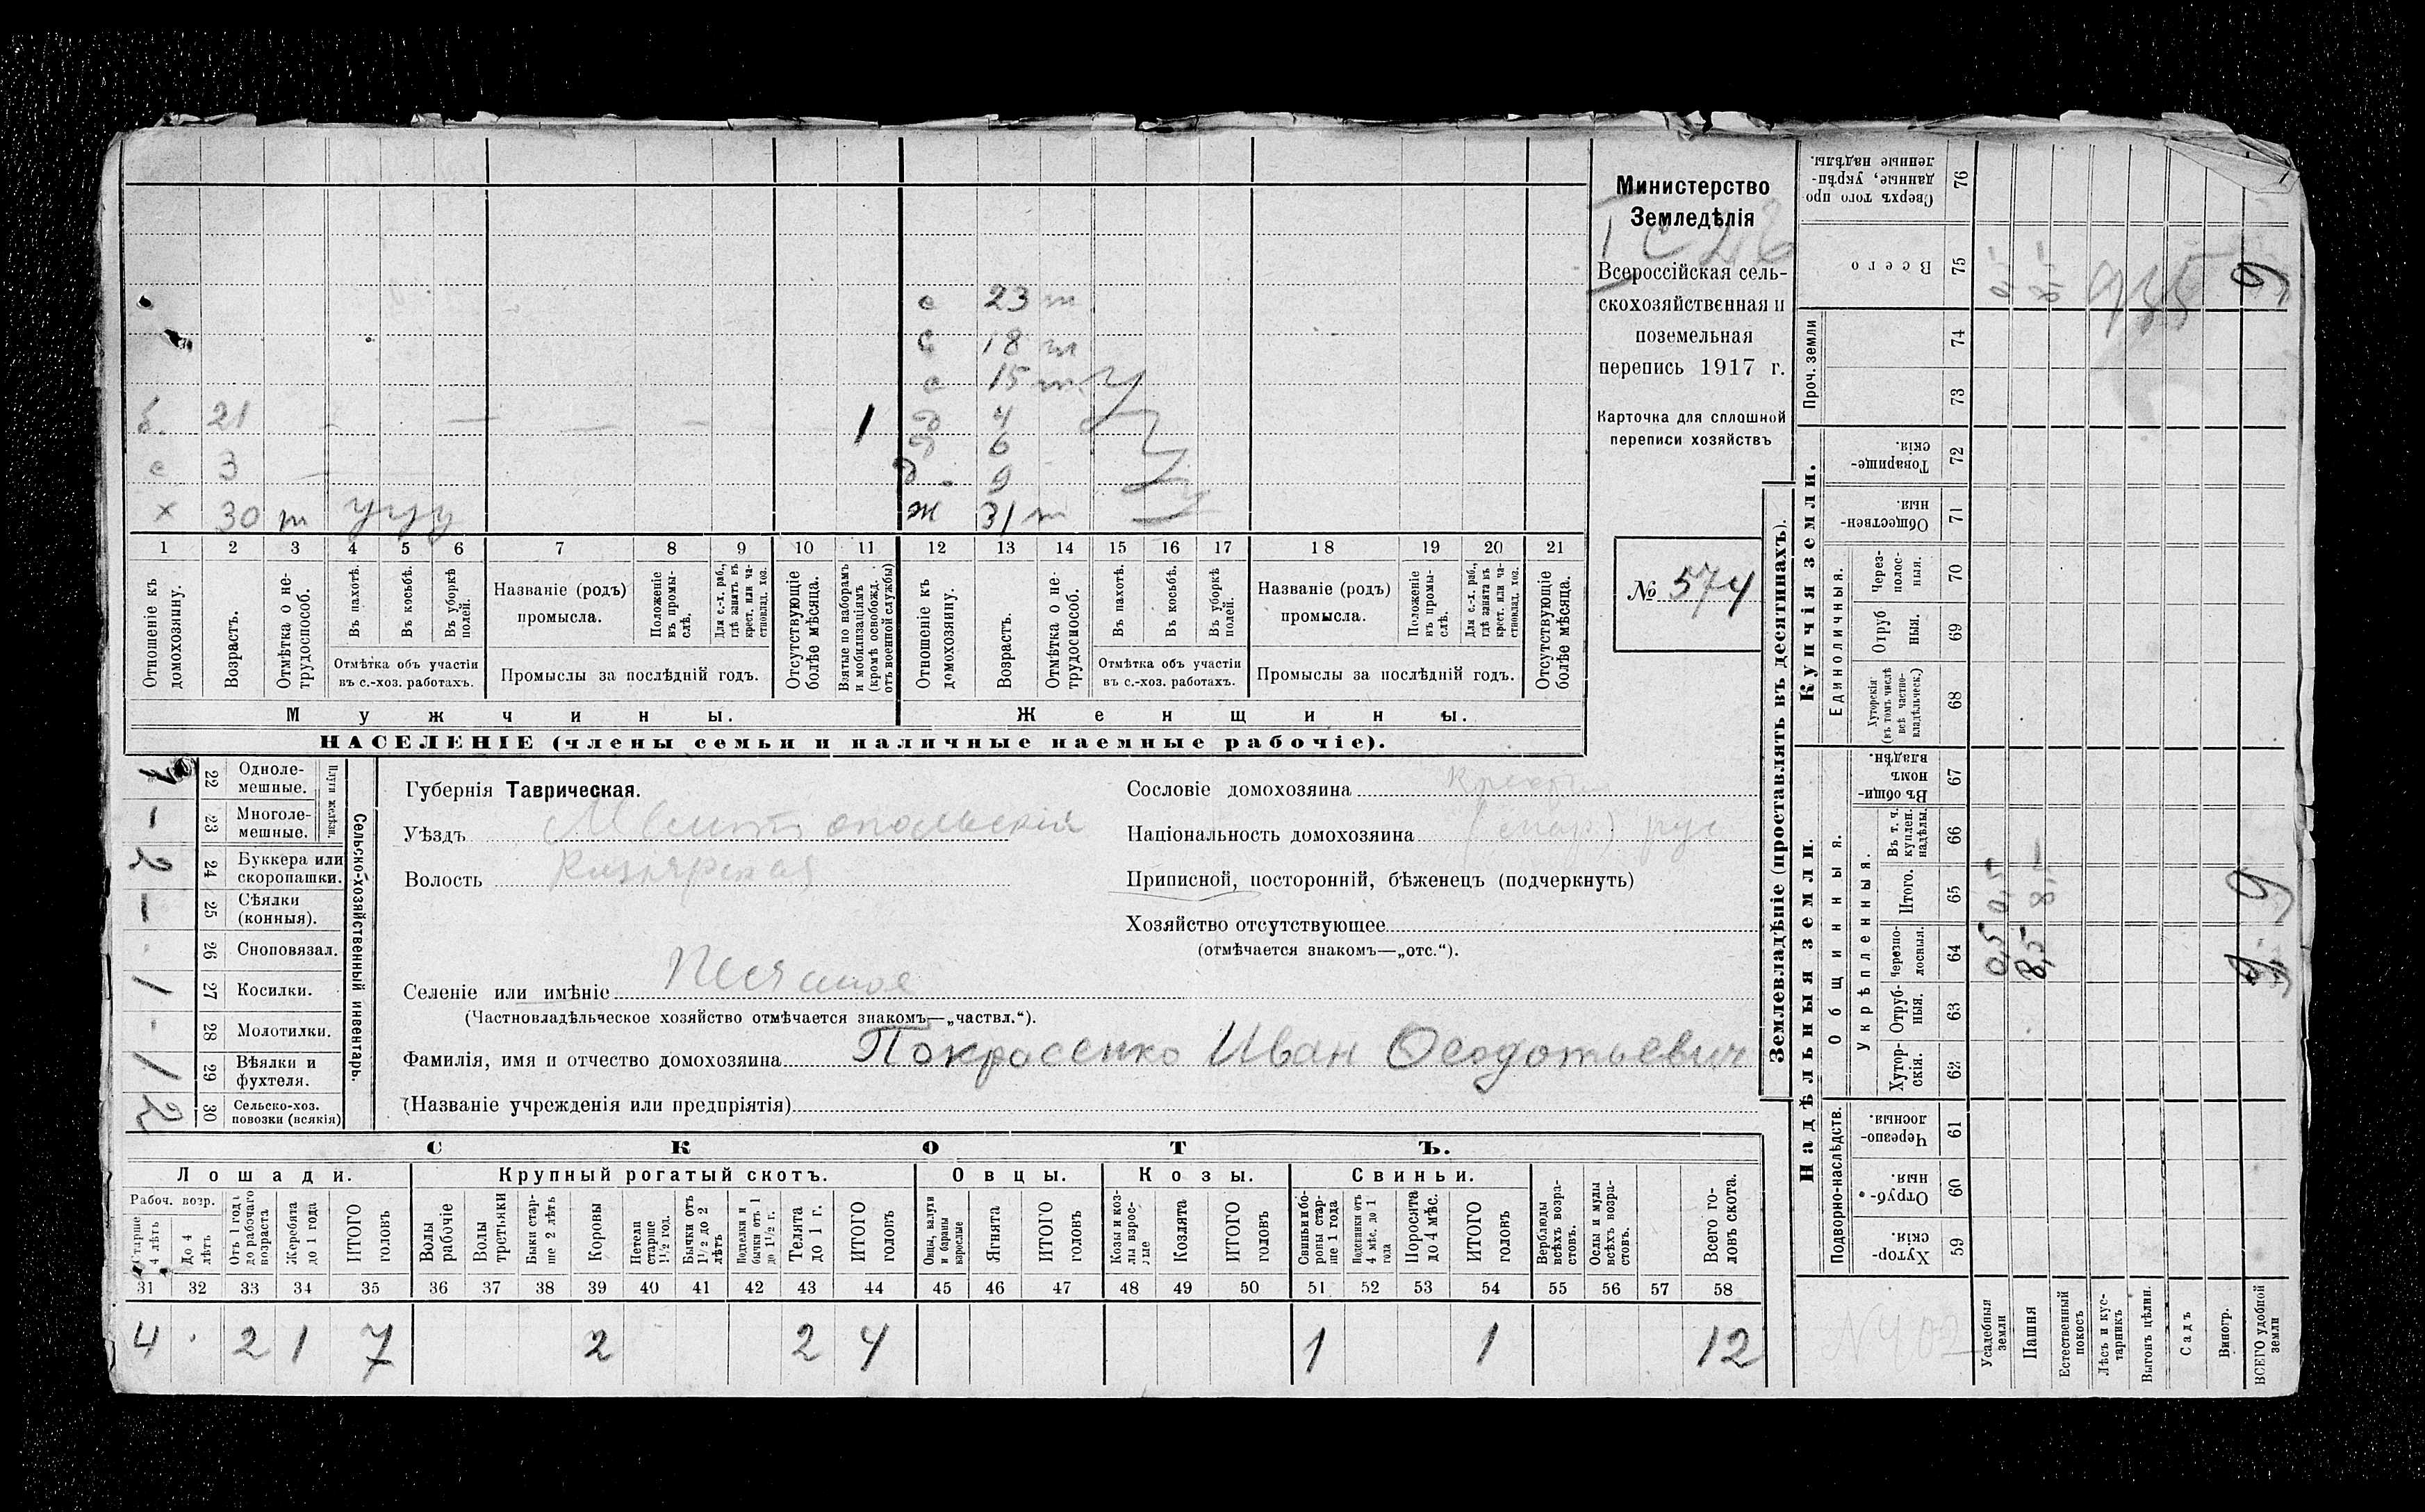 Министерство
Земледѣлія
Всероссійская сель-
скохозяйственная и
поземельная
перепись 1917 г.
Карточка для сплошной
переписи хозяйствъ
№ 574
с 23 т
с 18 т
с 15 т
б. 21 1 д 4
д 6
с 3 д 9
х 30 т ж 31 т
1 2 3 4 5 6 7 8 9 10 11 12 13 14 15 16 17 18 19 20 21
Отношеніе къ домохозяину.
Возрастъ.
Отмѣтка о не-трудоспособ.
Въ пахотѣ.
Въ косьбѣ.
Въ уборкѣ полей.
Отмѣтка объ участіи
въ с.-хоз. работахъ.
Названіе (родъ)
промысла.
Положеніе въ промы-слѣ.
Для с.-х. раб., гдѣ занятъ въ крест. или ча-стновлад. хоз.
Промыслы за послѣдній годъ.
Отсутствующіе болѣе мѣсяца.
Взятые по наборамъ и мобилизаціямъ (кромѣ освобожд. отъ военной службы)
Отношеніе къ домохозяину.
Возрастъ.
Отмѣтка о не-трудоспособ.
Въ пахотѣ.
Въ косьбѣ.
Въ уборкѣ полей.
Отмѣтка объ участіи
въ с.-хоз. работахъ.
Названіе (родъ)
промысла.
Положеніе въ промы-слѣ.
Для с.-х. раб., гдѣ занята въ крест. или ча-стновлад. хоз.
Промыслы за послѣдній годъ.
Отсутствующіе болѣе мѣсяца.
Мужчины. Женщины.
НАСЕЛЕНІЕ (члены семьи и наличные наемные рабочіе).
Сельско-хозяйственный инвентарь.
Плуги желѣзн.
1 22 Одноле-мешные.
— 23 Многоле-мешные.
2 24 Буккера или скоропашки.
— 25 Сѣялки (конныя).
26 Сноповязал.
1 27 Косилки.
28 Молотилки.
1 29 Вѣялки и фухтеля.
2 30 Сельско-хоз. повозки (всякія)
Губернія Таврическая.
Уѣздъ Мелитопольскій
Волость Кизіярская
Селеніе или имѣніе Песчаное
(Частновладѣльческое хозяйство отмѣчается знакомъ—„частвл.“).
Фамилія, имя и отчество домохозяина Покрасенко Иван Феодотьевич
(Названіе учрежденія или предпріятія)
Сословіе домохозяина
Національность домохозяина рус
Приписной, посторонній, бѣженецъ (подчеркнуть)
Хозяйство отсутствующее
(отмѣчается знакомъ—„отс.“).
СКОТЪ.
Лошади. Крупный рогатый скотъ. Овцы. Козы. Свиньи.
Рабоч. возр.
Старше 4 лѣтъ
До 4 лѣтъ
Отъ 1 года до рабочаго возраста
Жеребята до 1 года
ИТОГО головъ
Волы рабочіе
Волы третьяки
Быки стар-ше 2 лѣтъ
Коровы
Нетели старше 1½ год.
Бычки отъ 1½ до 2 лѣтъ
Подтелки и бычки отъ 1 до 1½ г.
Телята до 1 г.
ИТОГО головъ
Овцы, валухи и бараны взрослые
Ягнята
ИТОГО головъ
Козы и коз-лы взрос-лые
Козлята
ИТОГО головъ
Свиньи и бо-ровы стар-ше 1 года
Подсвинки отъ 4 мѣс. до 1 года
Поросята до 4 мѣс.
ИТОГО головъ
Верблюды всѣхъ возра-стовъ.
Ослы и мулы всѣхъ возра-стовъ.
Всего го-ловъ скота.
31 32 33 34 35 36 37 38 39 40 41 42 43 44 45 46 47 48 49 50 51 52 53 54 55 56 57 58
4 2 1 7 2 2 4 1 1 12
Землевладѣніе (проставлять въ десятинахъ).
Надѣльныя земли.
Купчія земли.
Проч. земли
Подворно-наслѣдств.
Общинныя.
Укрѣпленныя.
Единоличныя.
Сверхъ того про-данные, укрѣп-ленные надѣлы. 76
Всего 75
74
73
Товарище-скія. 72
Обществен-ныя. 71
Через-полос-ныя. 70
Отруб-ныя. 69
Хуторскія (въ томъ числѣ всѣ частно-владѣльческ.) 68
Въ общи-номъ владѣн. 67
Въ т. ч. куплен. надѣлы. 66
Итого. 65 0,5 8,5 9
Черезпо-лосныя. 64 0,5 8,5 9
Отруб-ныя. 63
Хутор-скія. 62
Черезпо-лосныя. 61
Отруб-ныя. 60
Хутор-скія. 59
N 402
Усадебныя земли
Пашня
Естественный покосъ
Лѣсъ и кус-тарникъ
Выгонъ цѣлин.
Садъ
Виногр.
ВСЕГО удобной земли